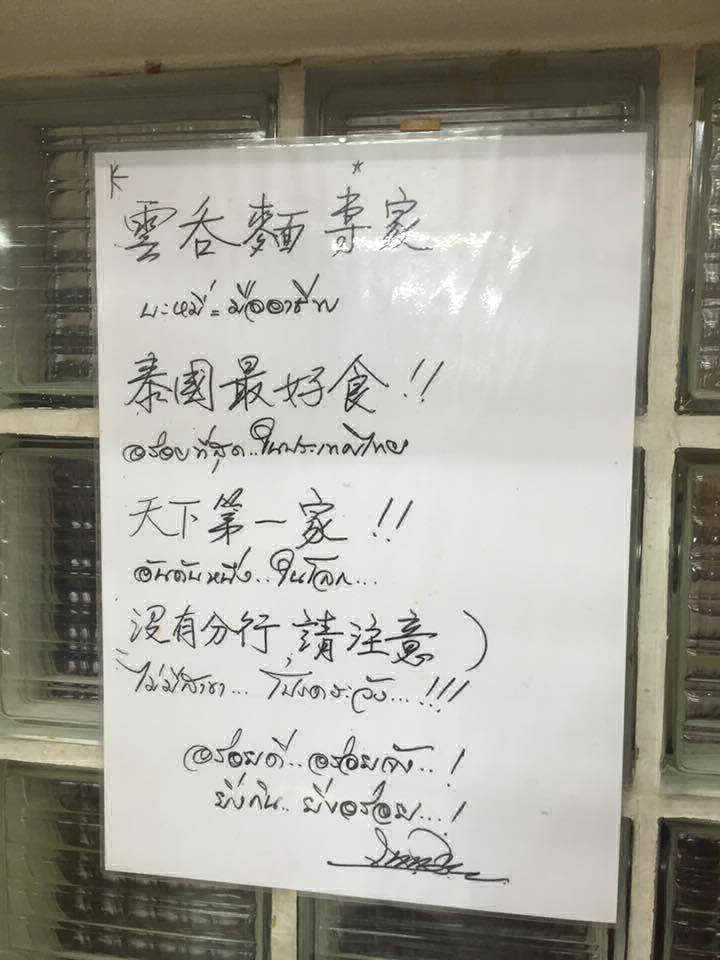 K *
雲吞麵專家
บะหมี่=มืออาชีพ
泰國最好食!!
อร่อยที่สุด..ในประเทศไทย
天下第一家!!
อันดับหนึ่ง..ในโลก...
没有分行,請注意)
ไม่มีสาขา...โปรดระวัง...!!!
อร่อยดี..อร่อยจัง..!
ยิ่งกิน..ยิ่งอร่อย...!